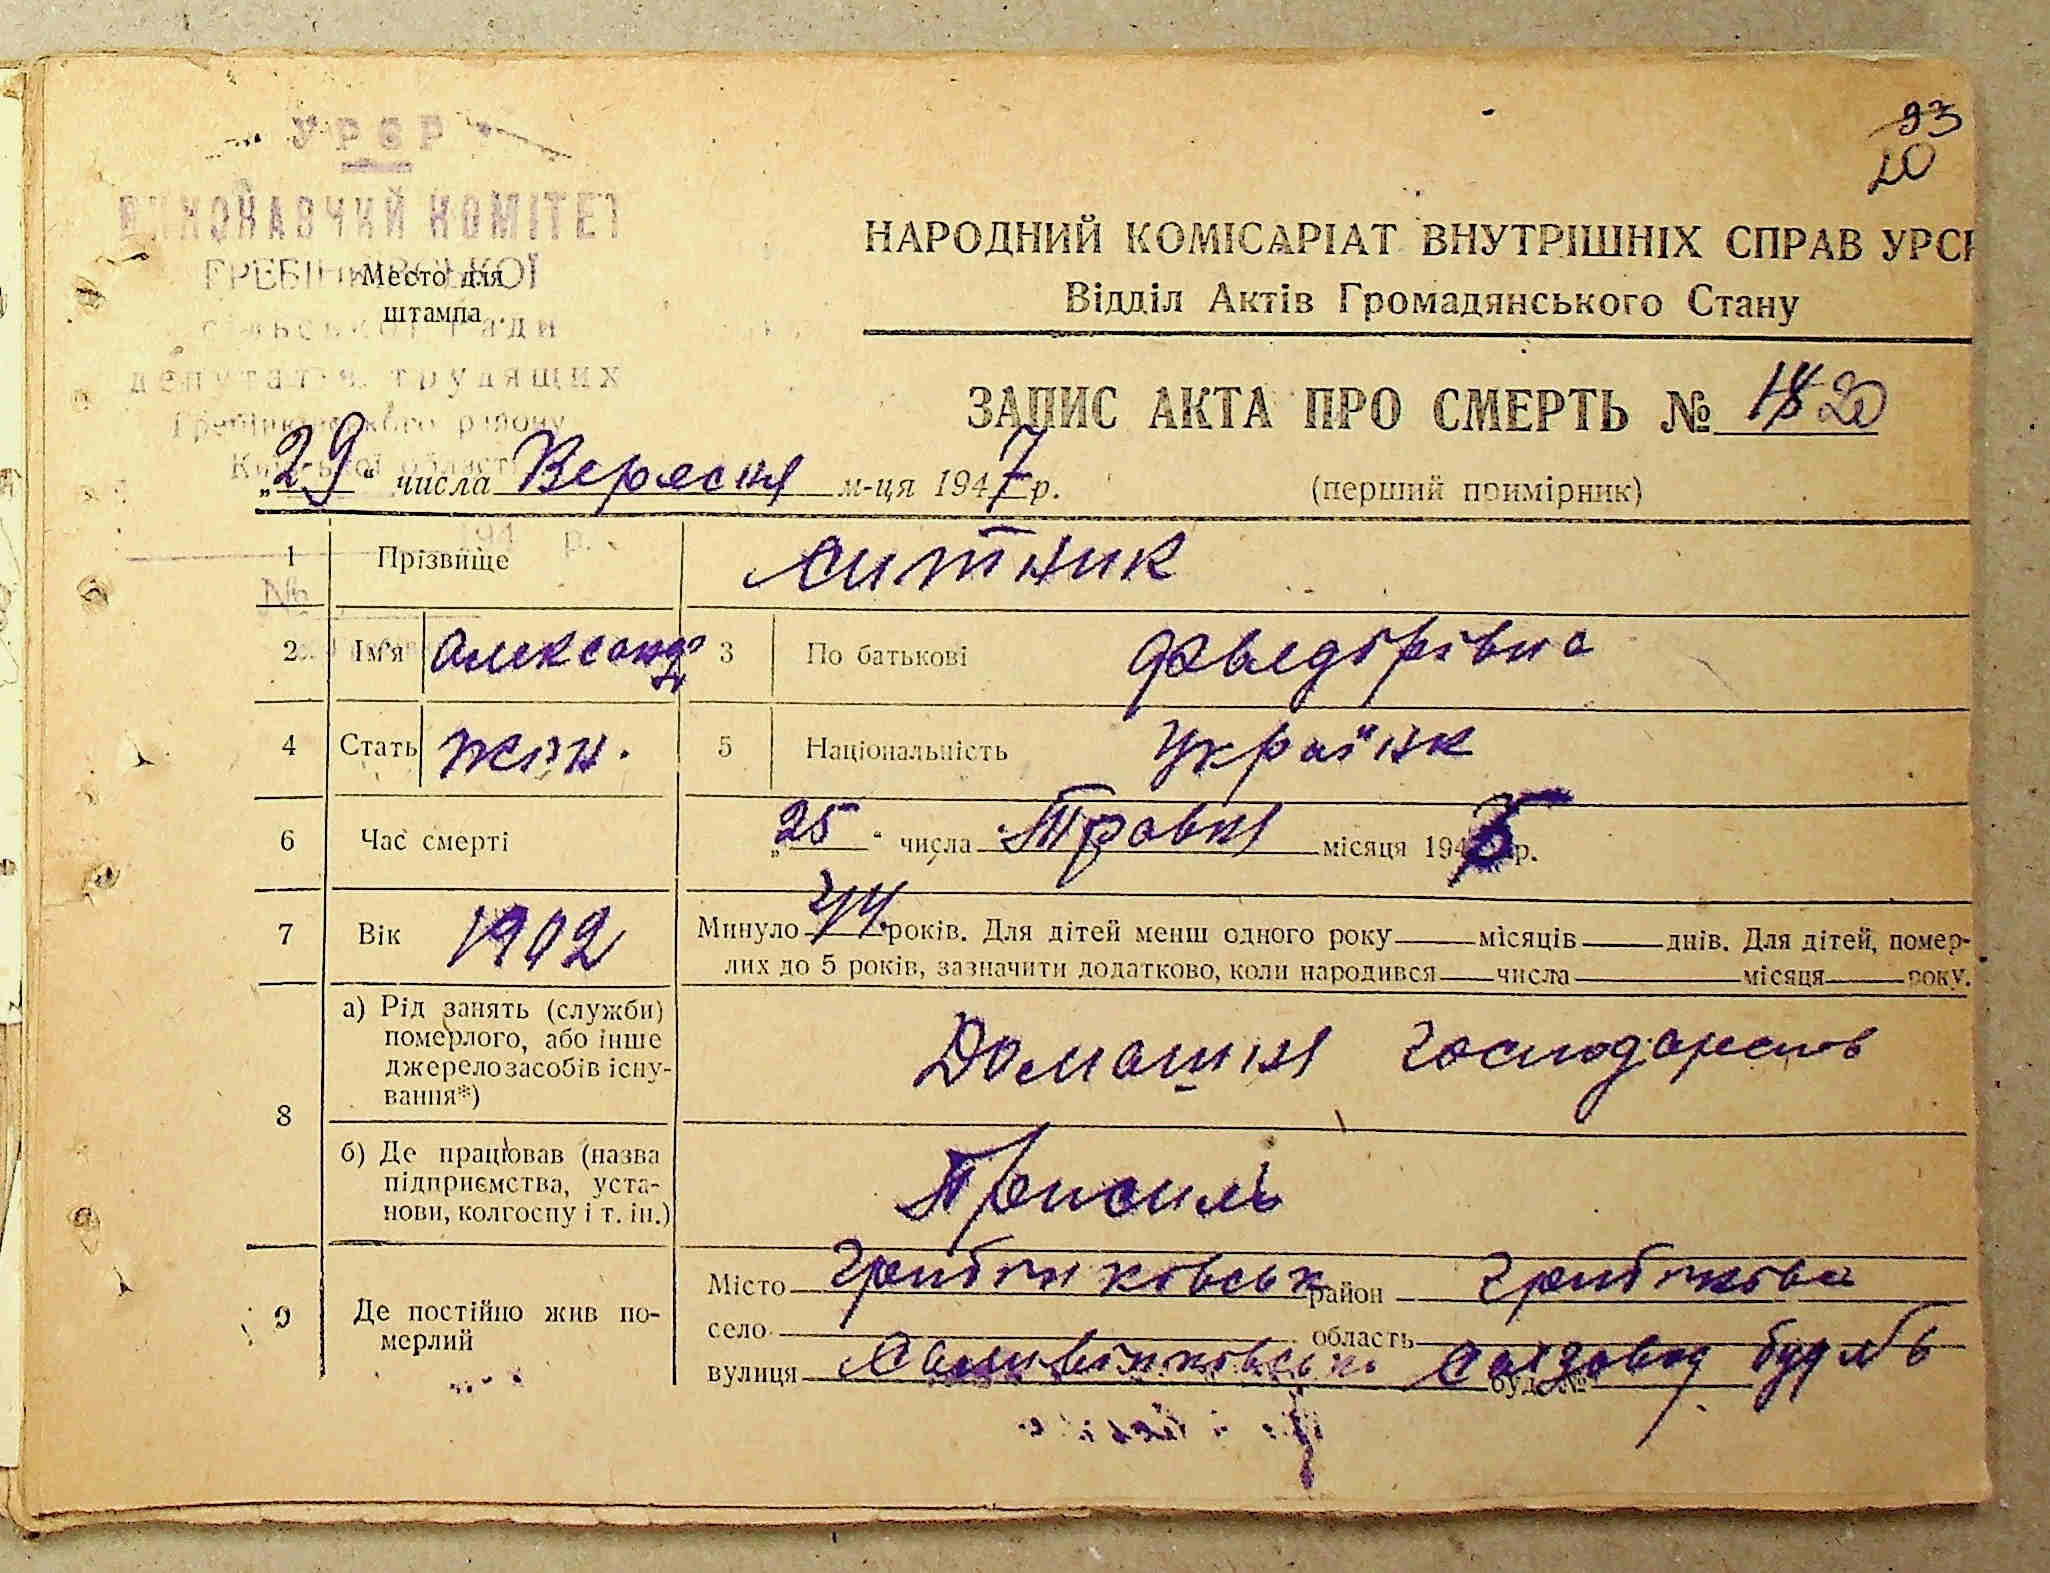 93
20
УРСР
ВИКОНАВЧИЙ КОМІТЕТ
ГРЕБІНКІВСЬКОЇ
Место для
штампа
сільської ради
депутатів трудящих
Гребінківського району
Київської області
194 р.
№
НАРОДНИЙ КОМІСАРІАТ ВНУТРІШНІХ СПРАВ УРСР
Відділ Актів Громадянського Стану
ЗАПИС АКТА ПРО СМЕРТЬ № 20
„29“ числа Вересня м-ця 1947 р.
(перший примірник)
1 Прізвище Ситник
2 Ім'я Александр 3 По батькові Фьедорівна
4 Стать жін. 5 Національність Українк
6 Час смерті „25“ числа Травня місяця 1945 р.
7 Вік 1902 Минуло 44 років. Для дітей менш одного року місяців днів. Для дітей, помер-
лих до 5 років, зазначити додатково, коли народився числа місяця року.
8 а) Рід занять (служби)
померлого, або інше
джерело засобів існу-
вання*)
Домашня господарств
б) Де працював (назва
підприємства, уста-
нови, колгоспу і т. ін.)
9 Де постійно жив по-
мерлий
Місто Гребінковськ район Гребінкова
село область
вулиця буд. №